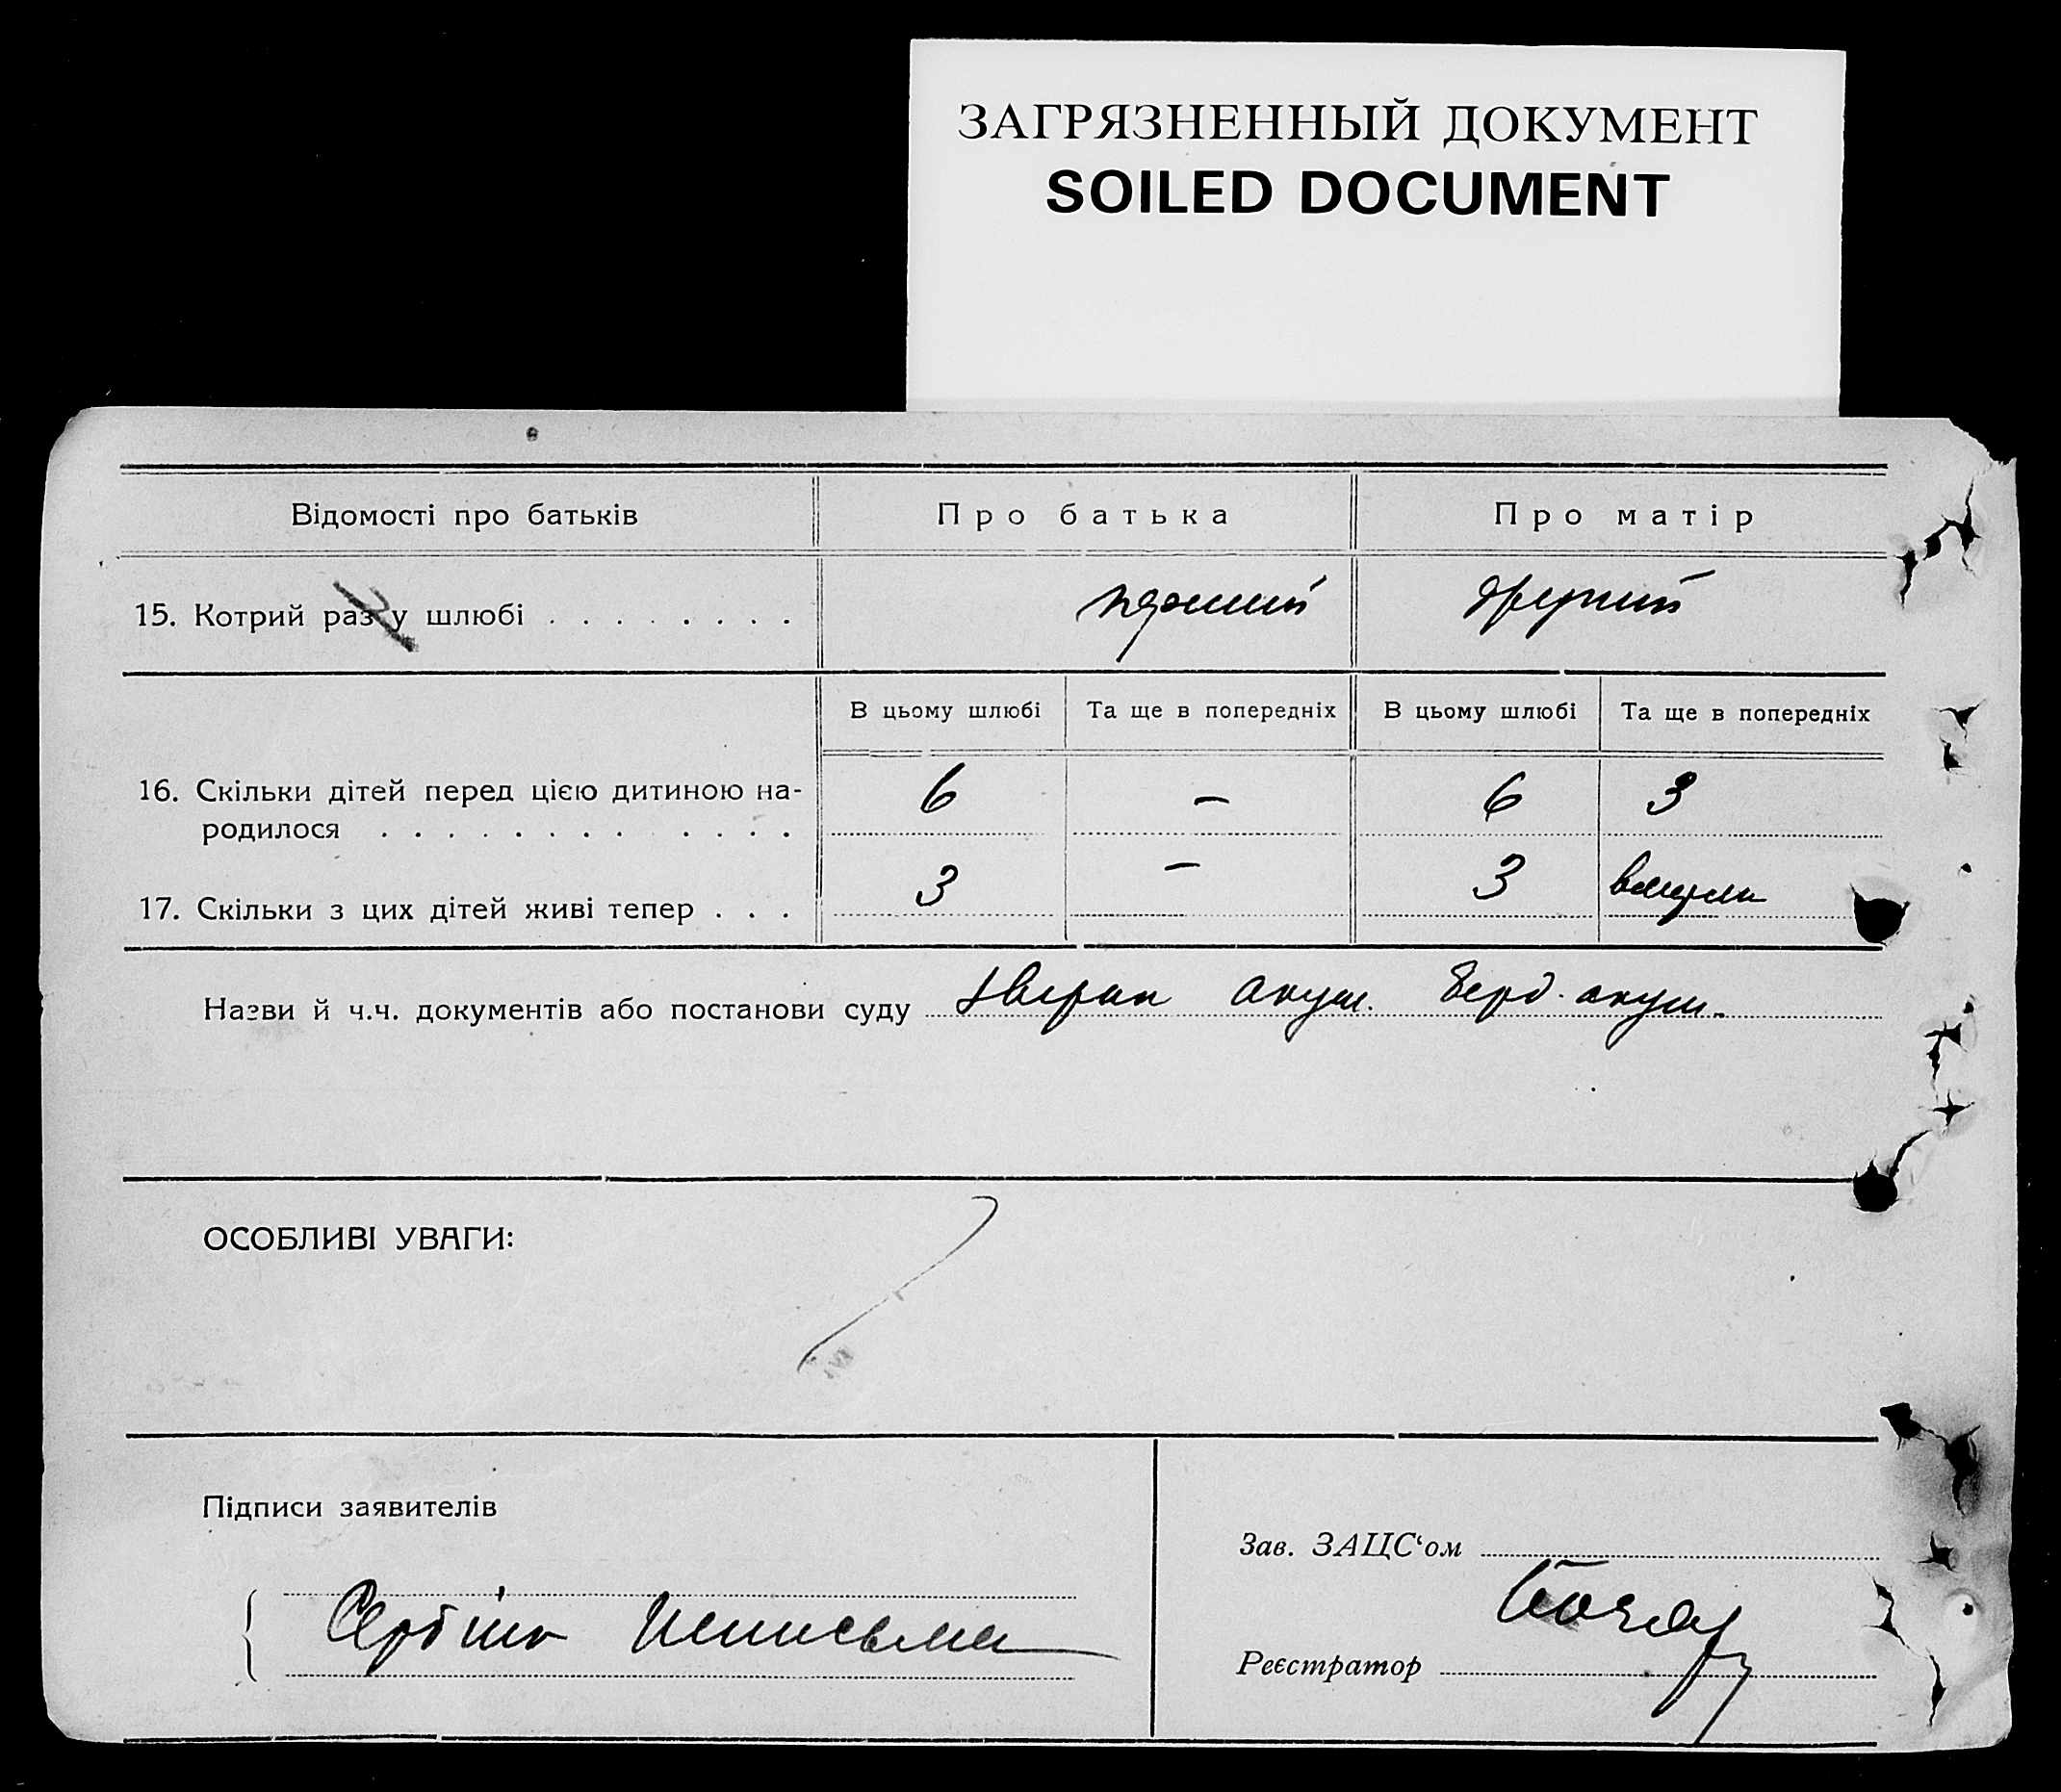 ЗАГРЯЗНЕННЫЙ ДОКУМЕНТ
SOILED DOCUMENT
Відомості про батьків Про батька Про матір
15. Котрий раз у шлюбі . . . . . . . . перший другий
В цьому шлюбі Та ще в попередніх В цьому шлюбі Та ще в попередніх
16. Скільки дітей перед цією дитиною на-
родилося . . . . . . . . . . . . 6 — 6 3
17. Скільки з цих дітей живі тепер . . . 3 — 3 вмерли
Назви й ч.ч. документів або постанови суду акуш. Берд. акуш.
ОСОБЛИВІ УВАГИ:
Підписи заявителів
Зав. ЗАЦС‘ом
Реєстратор